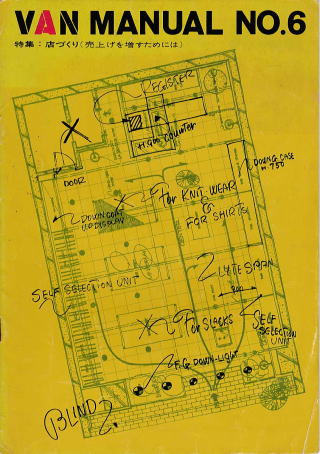 VAN MANUAL NO.6
特集：店づくり(売上げを増すためには)
REGISTER
HIGH COUNTER
DOOR
DOWNG CASE
H 750
For KNIT WEAR
&
FOR SHIRTS
DOWN COAT
DISPLAY
SELF SELECTION UNIT
LYTE SPAN
800
For SLACKS
SELF
SELECTION
UNIT
DOWN-LIGHT
BLIND